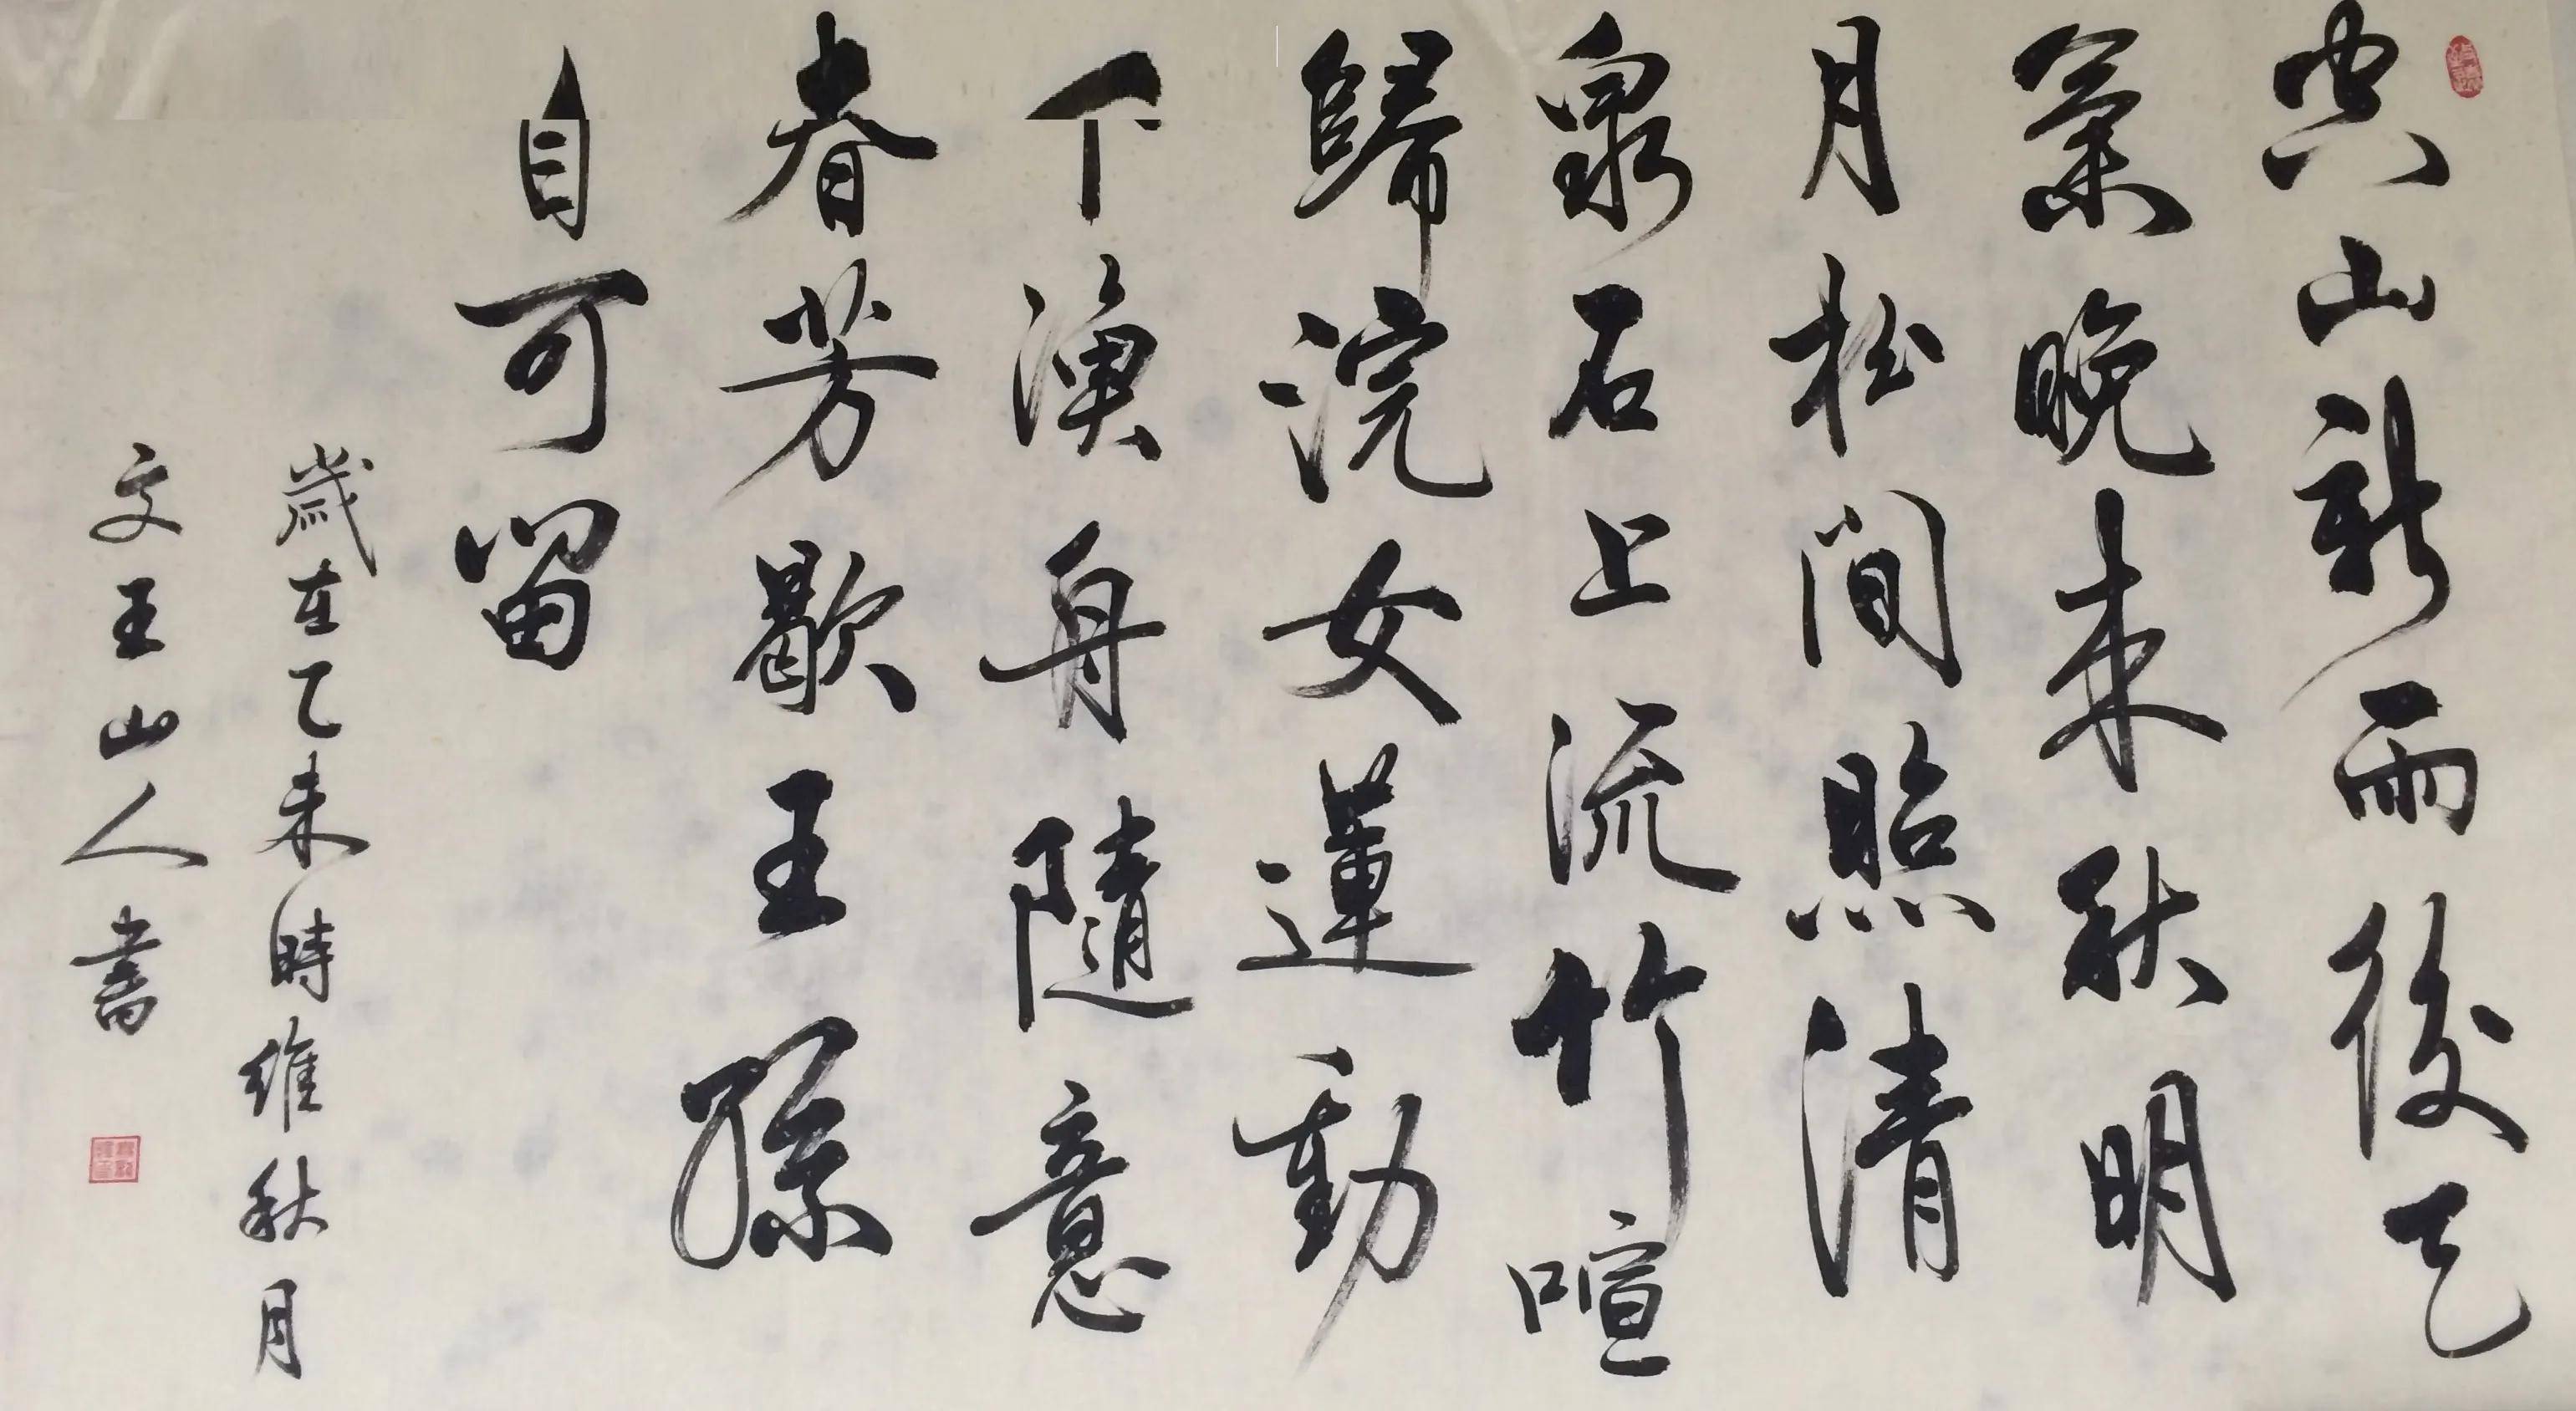 空山新雨後天
氣晚来秋明
月松間照清
泉石上流竹喧
歸浣女蓮動
下漁舟隨意
春芳歇王孫
自可留
歲在乙未時維秋月
文王山人書